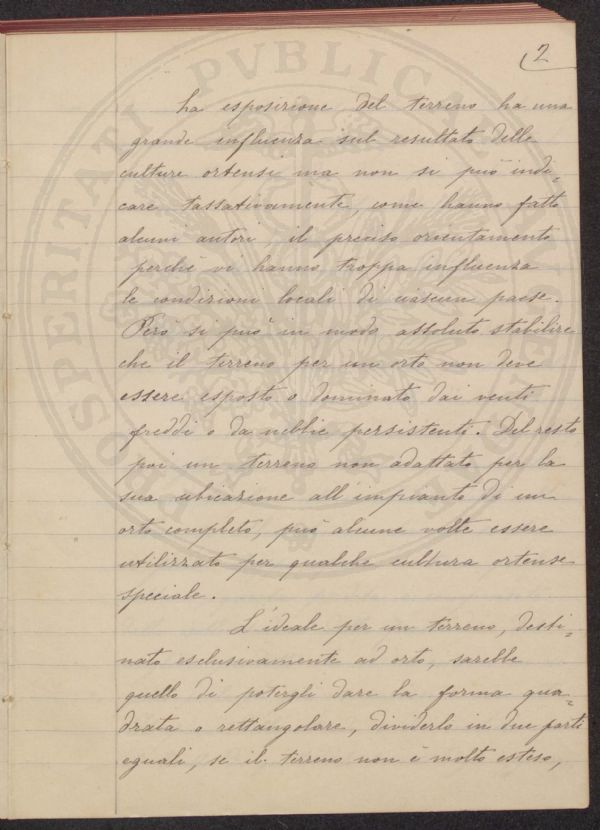 2
La esposizione del terreno ha una
grande influenza sul resultato delle
culture ortensi ma non si può indi-
care tassativamente, come hanno fatto
alcuni autori, il preciso orientamento
perchè vi hanno troppa influenza
le condizioni locali di ciascun paese.
Però si può in modo assoluto stabilire
che il terreno per un orto non deve
essere esposto o dominato dai venti
freddi o da nebbie persistenti. Del resto
poi un terreno non adattato per la
sua ubicazione all'impianto di un
orto completo, può alcune volte essere
utilizzato per qualche cultura ortense
speciale.
L'ideale per un terreno, desti-
nato esclusivamente ad orto, sarebbe
quello di potergli dare la forma qua-
drata o rettangolare, dividerlo in due parti
eguali, se il terreno non è molto esteso,
PROSPERITATI PVBLICAE